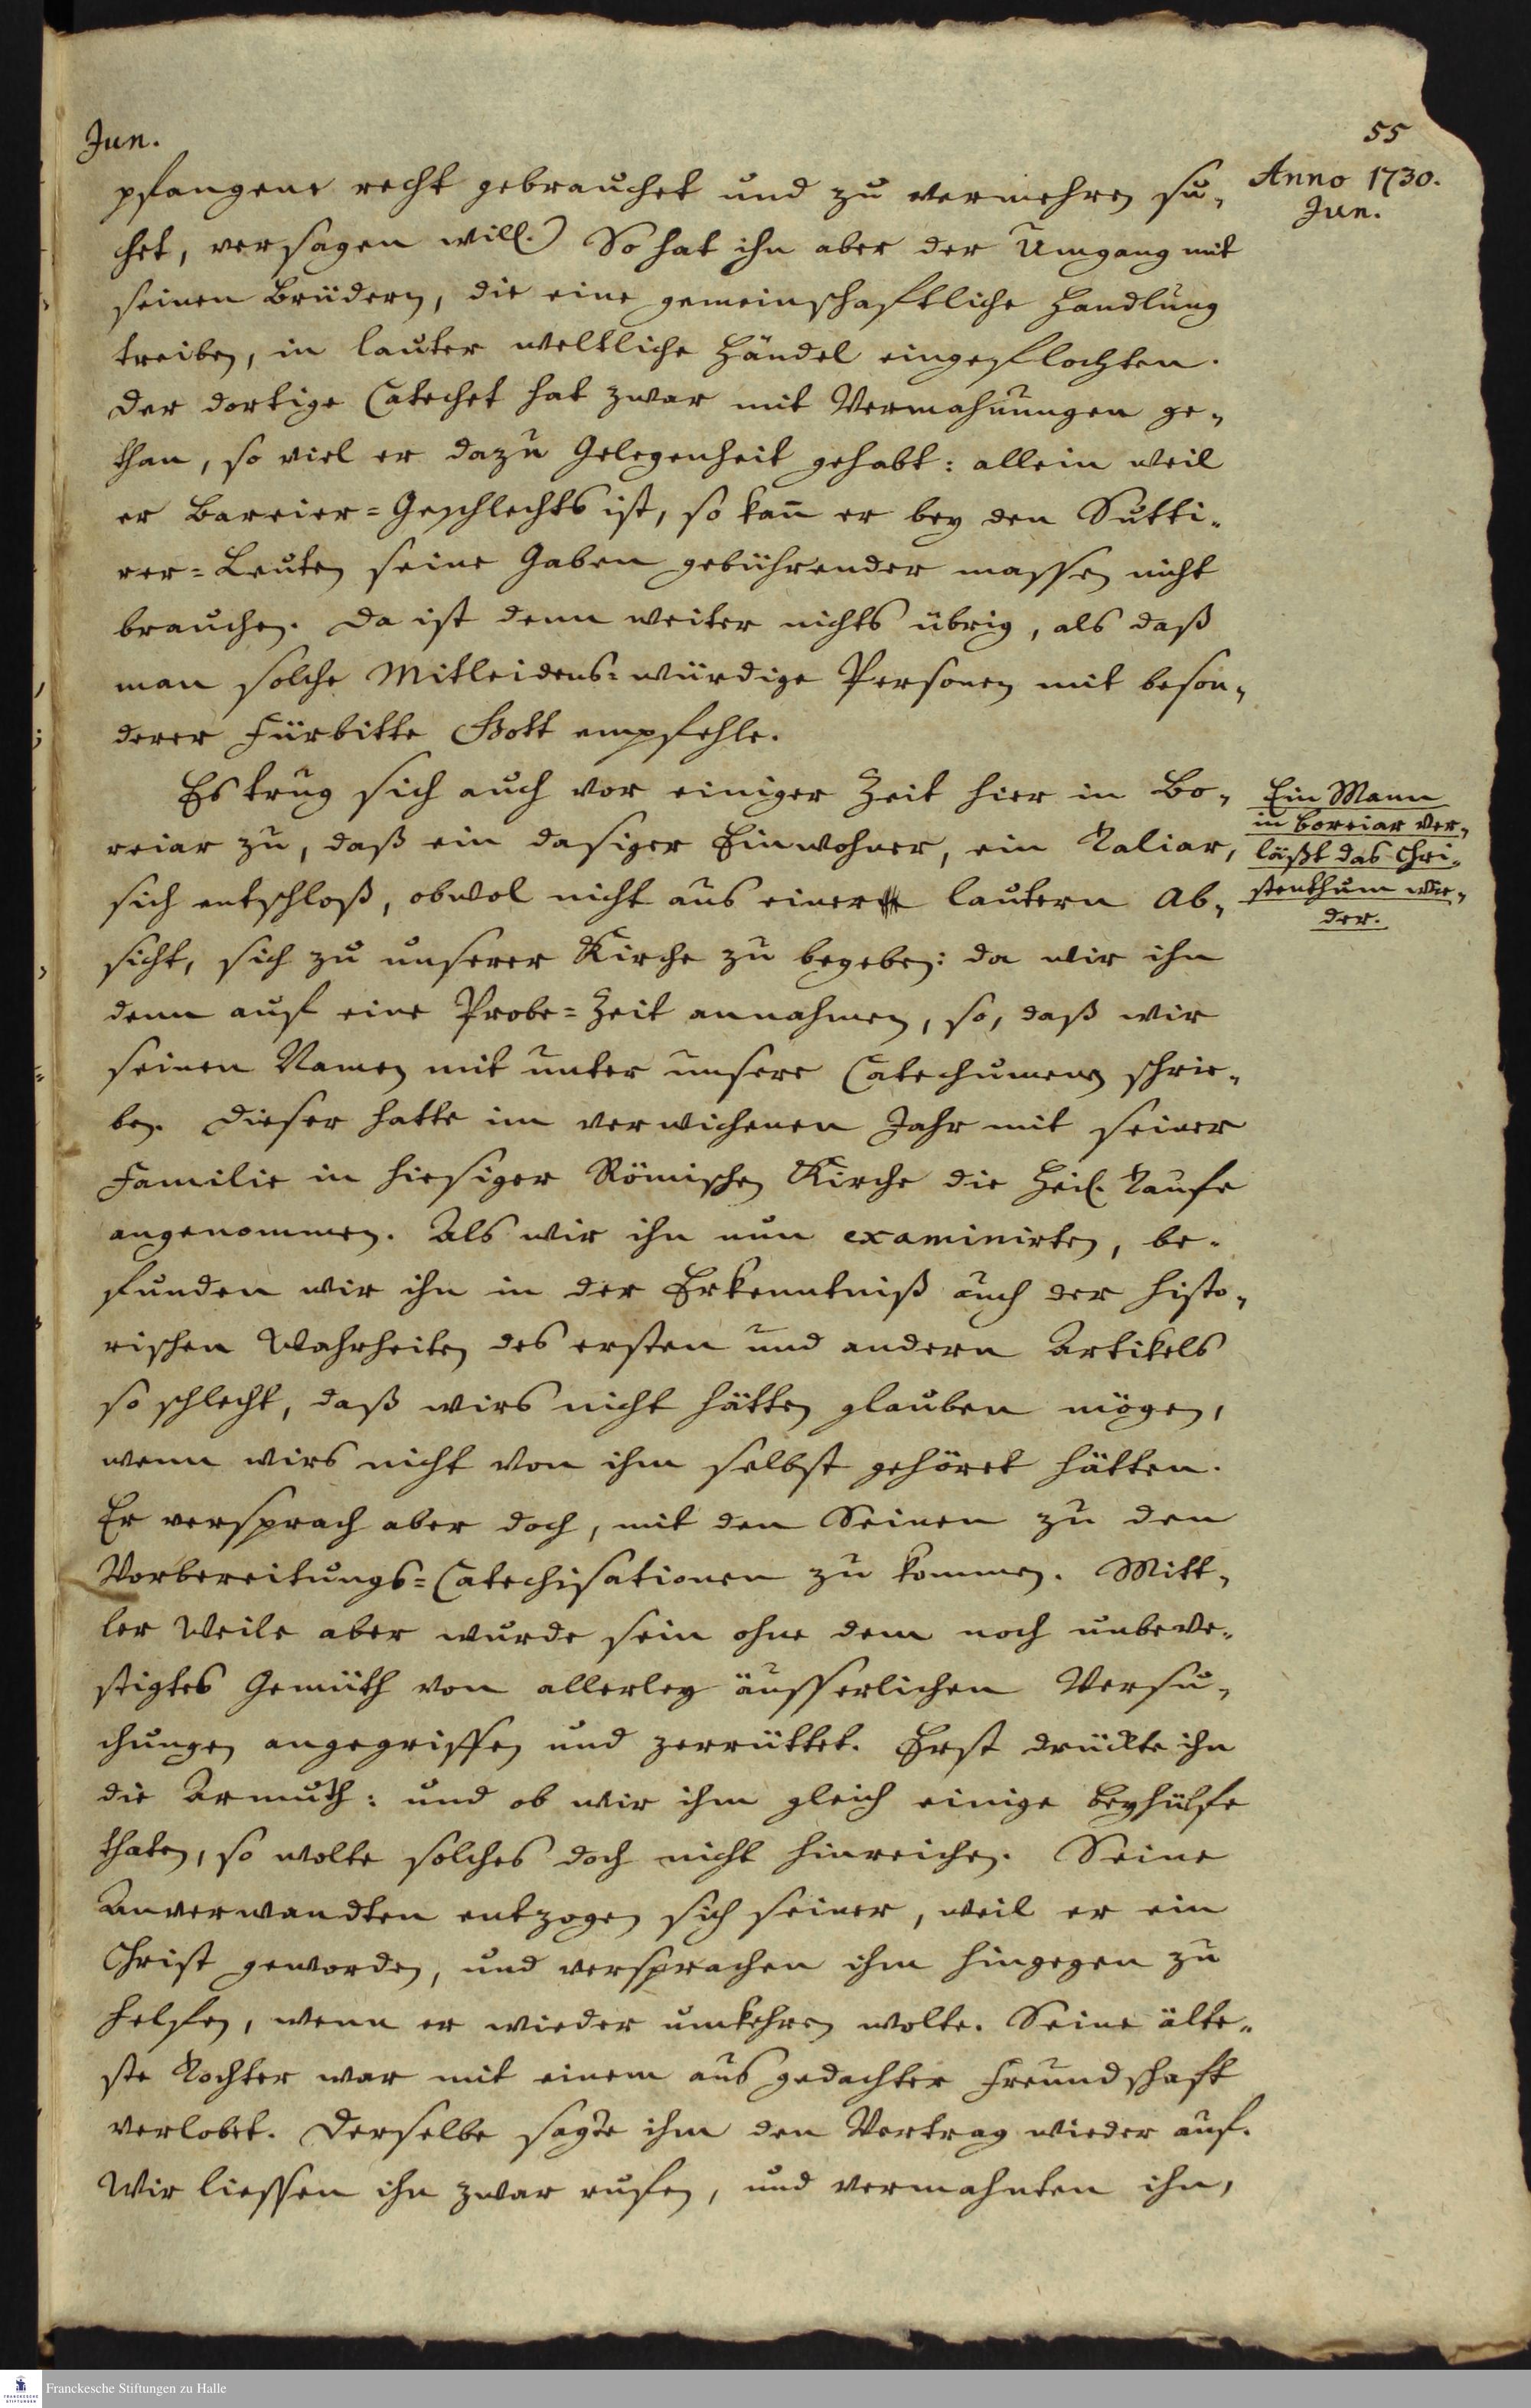 Jun.
55
Anno 1730.
Jun.
pfangene recht gebrauchet und zu vermehren su-
chet, versagen will.) So hat ihn aber der Umgang mit
seinen Brüdern, die eine gemeinschaftliche Handlung
treiben, in lauter weltliche Händel eingeflochten.
Der dortige Catechet hat zwar mit Vermahnungen ge-
than, so viel er dazu Gelegenheit gehabt: allein weil
er Bareier=Geschlechts ist, so kan̅ er bey den Sutti-
rer=Leuten seine Gaben gebührender massen nicht
brauchen. Da ist denn weiter nichts übrig, als daß
man solche Mitleidens=würdige Personen mit beson-
derer Fürbitte Gott empfehle.
Es trug sich auch vor einiger Zeit hier in Bo-
reiar zu, daß ein dasiger Einwohner, ein Taliar,
sich entschloß, obwol nicht aus einer lautern Ab-
sicht, sich zu unserer Kirche zu begeben: da wir ihn
denn auf eine Probe=Zeit annahmen, so, daß wir
seinen Namen mit unter unsere Catechumenos schrie-
ben. Dieser hatte im verwichenen Jahr mit seiner
Familie in hiesiger Römischen Kirche die Heil. Taufe
angenommen. Als wir ihn nun examinirten, be-
funden wir ihn in der Erkenntniß auch der histo-
rischen Wahrheiten des ersten und andern Artikels
so schlecht, daß wirs nicht hätten glauben mögen,
wenn wirs nicht von ihm selbst gehöret hätten.
Er versprach aber doch, mit den Seinen zu den
Vorbereitungs=Catechisationen zu kommen. Mitt-
ler Weile aber wurde sein ohne dem noch unbeve-
stigtes Gemüth von allerley äusserlichen Versu-
chungen angegriffen und zerrüttet. Erst drückte ihn
die Armuth: und ob wir ihm gleich einige Beyhülfe
thaten, so wolte solches doch nicht hinreichen. Seine
Anverwandten entzogen sich seiner, weil er ein
Christ geworden, und versprachen ihm hingegen zu
helfen, wenn er wieder umkehren wolte. Seine älte-
ste Tochter war mit einem aus gedachter Freundschaft
verlobet. Derselbe sagte ihm den Vertrag wieder auf.
Wir liessen ihn zwar rufen, und vermahnten ihn,
Ein Mann
in Boreiar ver-
läßt das Chri-
stenthum wie-
der.
Franckesche Stiftungen zu Halle